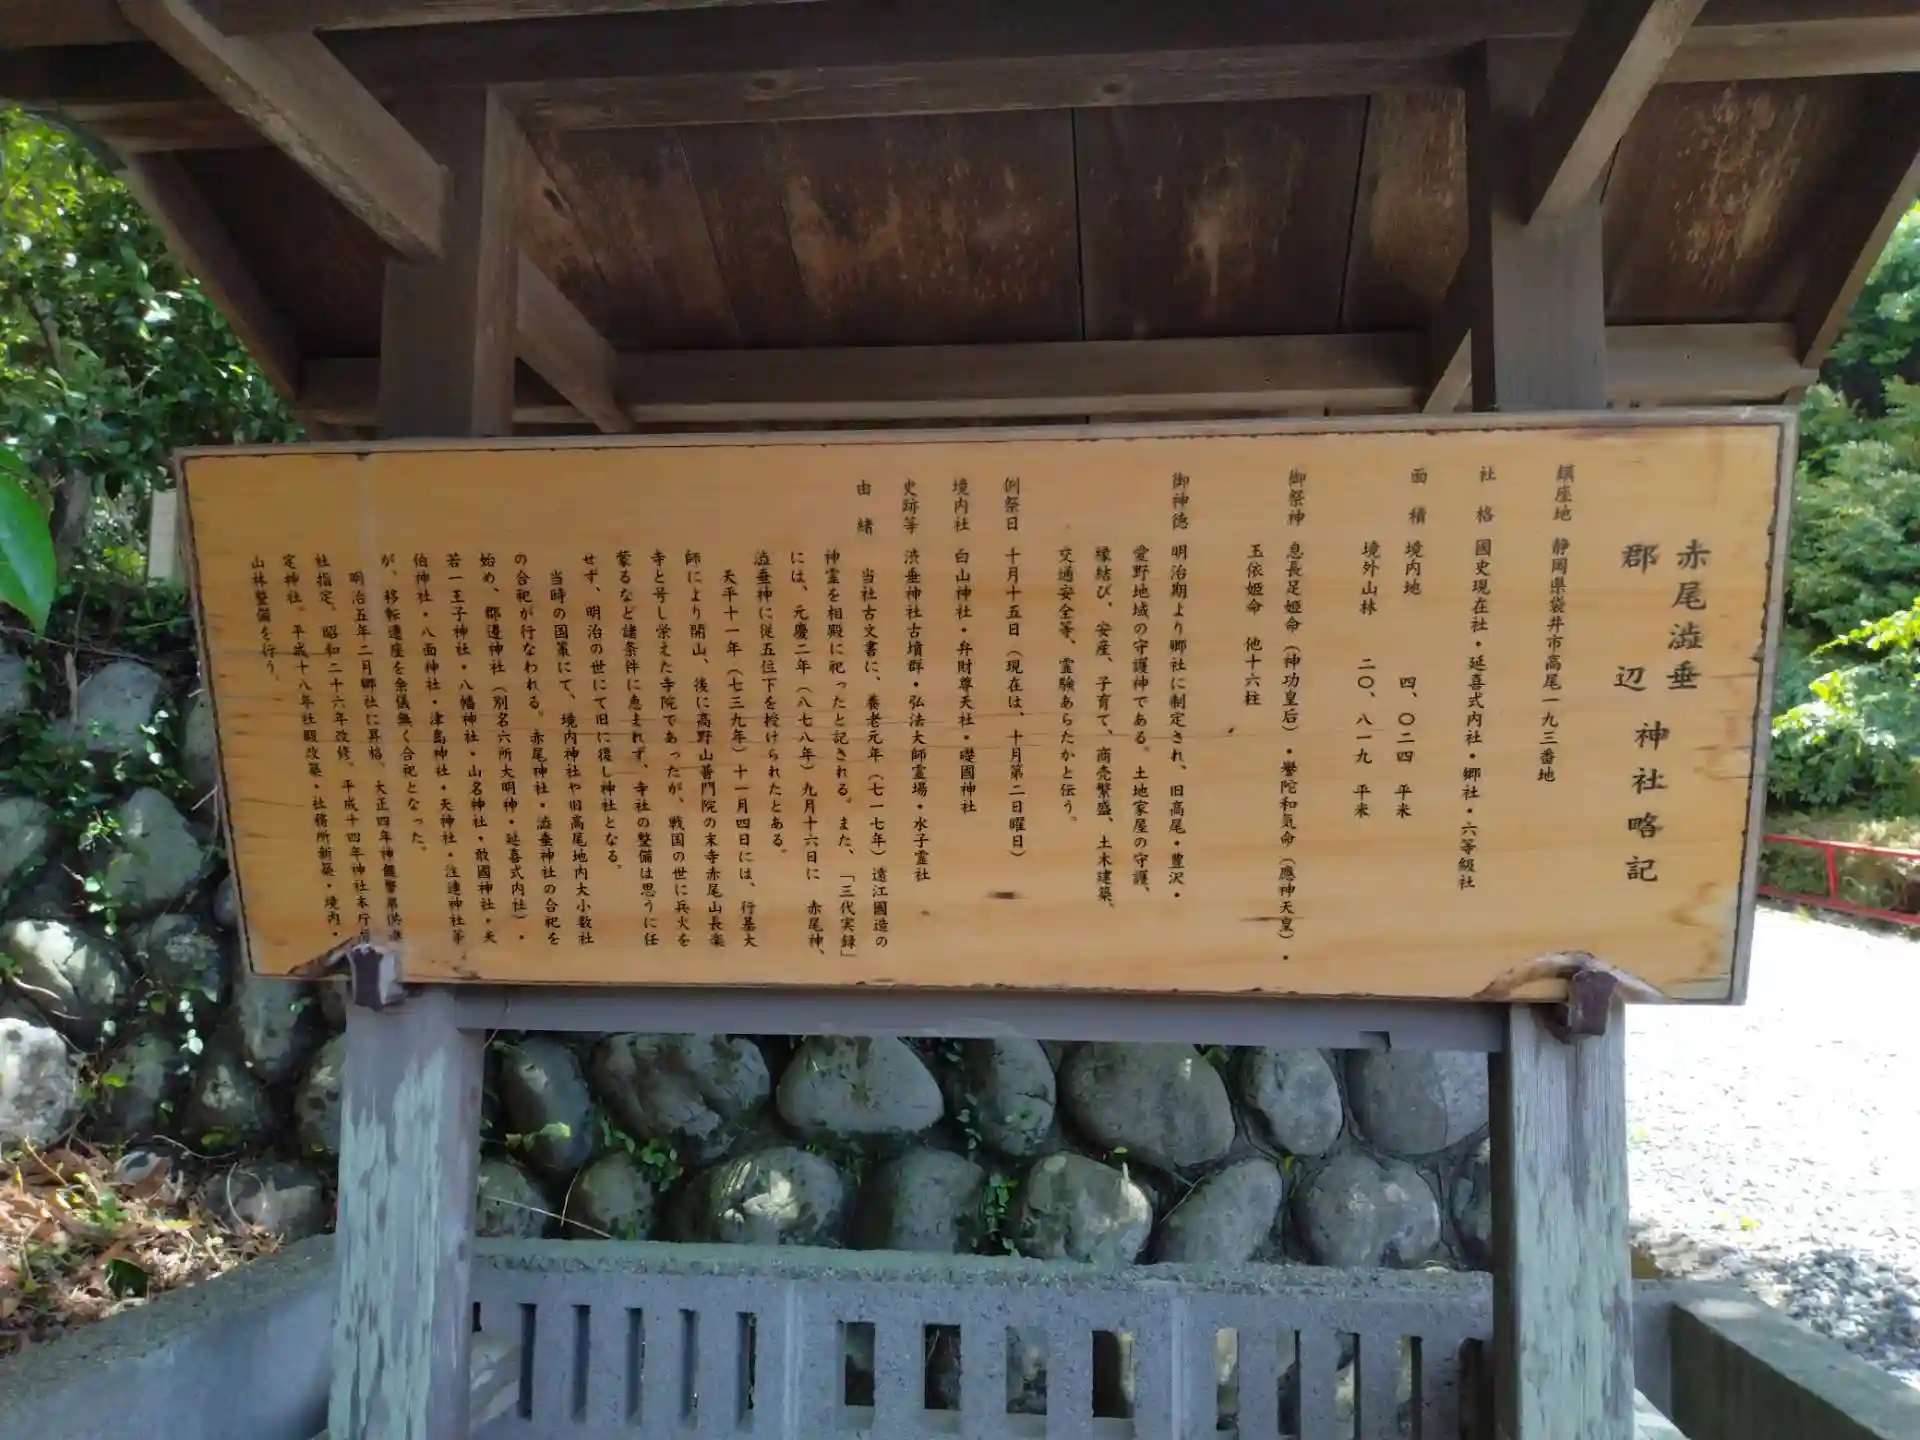 赤尾澁垂
郡辺神社略記
鎮座地 静岡県袋井市高尾一九三番地
社格 國史現在社・延喜式内社・郷社・六等級社
面積 境内地 四、〇二四 平米
境外山林 二〇、八一九 平米
御祭神 息長足姫命（神功皇后）・譽陀和気命（應神天皇）・
玉依姫命 他十六柱
御神徳 明治期より郷社に制定され、旧高尾・豊沢・
愛野地域の守護神である。土地家屋の守護、
縁結び、安産、子育て、商売繁盛、土木建築、
交通安全等、霊験あらたかと伝う。
例祭日 十月十五日（現在は、十月第二日曜日）
境内社 白山神社・弁財尊天社・礎國神社
史跡等 渋垂神社古墳群・弘法大師霊場・水子霊社
由緒 当社古文書に、養老元年（七一七年）遠江國造の
神霊を相殿に祀ったと記される。また、「三代実録」
には、元慶二年（八七八年）九月十六日に 赤尾神、
澁垂神に従五位下を授けられたとある。
天平十一年（七三九年）十一月四日には、行基大
師により開山、後に高野山普門院の末寺赤尾山長楽
寺と号し栄えた寺院であったが、戦国の世に兵火を
蒙るなど諸条件に恵まれず、寺社の整備は思うに任
せず、明治の世にて旧に復し神社となる。
当時の国策にて、境内神社や旧高尾地内大小数社
の合祀が行なわれる。赤尾神社・澁垂神社の合祀を
始め、郡邊神社（別名六所大明神・延喜式内社）・
若一王子神社・八幡神社・山名神社・敢國神社・矢
伯神社・八面神社・津島神社・天神社・注連神社等
が、移転遷座を余儀無く合祀となった。
明治五年二月郷社に昇格、大正四年神饌幣帛供進
社指定。昭和二十六年改修。平成十四年神社本庁
定神社。平成十八年社殿改築・社務所新築・境内・
山林整備を行う。